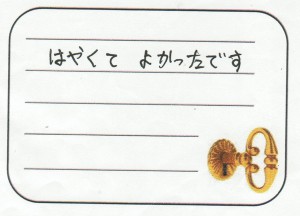 はやくて よかったです